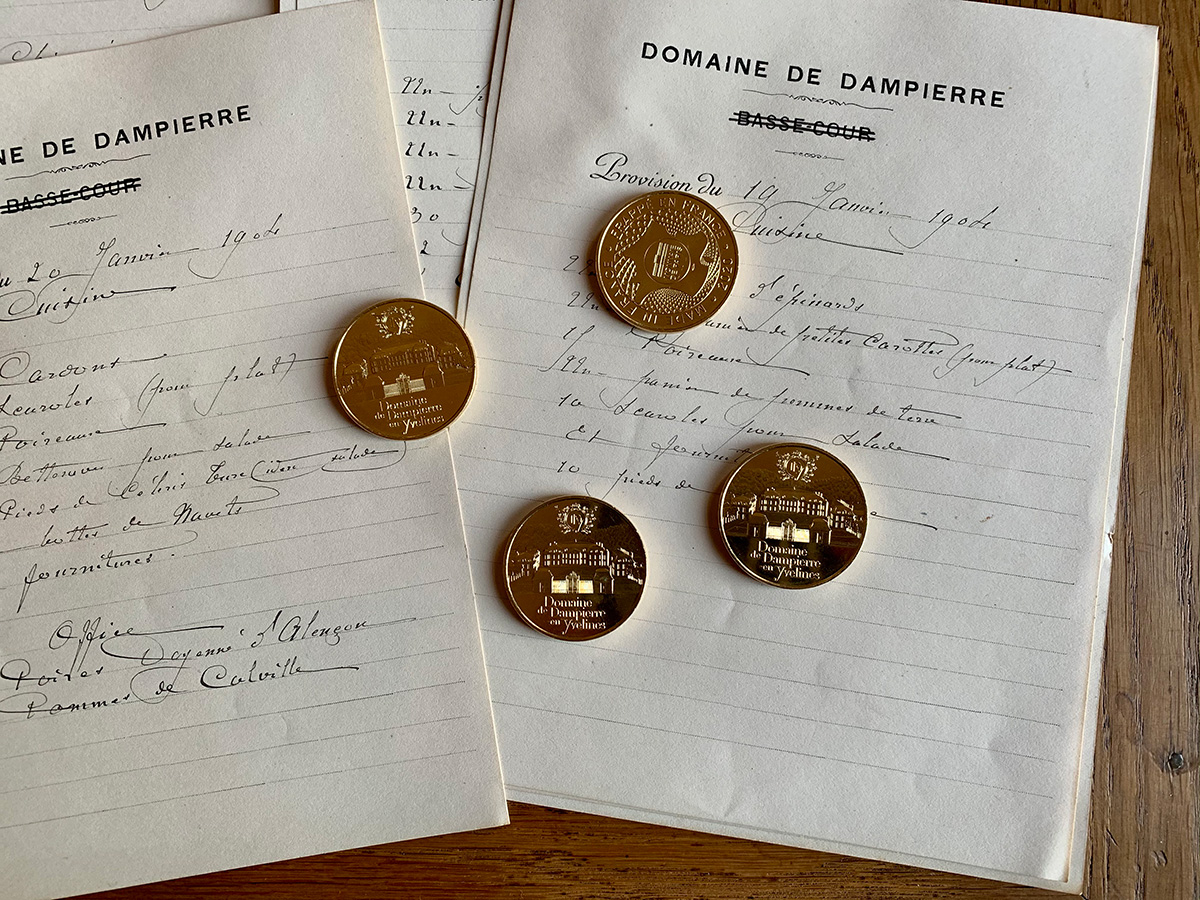 NE DE DAMPIERRE
BASSE-COUR
u 20 Janvier 1904
Cuisine
Cardons
Scaroles (pour plat)
Poireaux
Betteraves pour salade
Pieds de Céleris Turc (idem salade)
bottes de Navets
fournitures
Office
Poires Doyenné d'Alençon
Pommes de Calville
Un
Un
Un
Un
30
2
DOMAINE DE DAMPIERRE
BASSE-COUR
Provision du 19 Janvier 1904
Cuisine
d'épinards
Un panier de petites Carottes (pour plat)
15 Poireaux
Un panier de pommes de terre
10 Scaroles pour salade
Et fournit
10 pieds de
MADE IN FRANCE FRAPPÉ EN FRANCE
Domaine
de Dampierre
en Yvelines
Domaine
de Dampierre
en Yvelines
Domaine
de Dampierre
en Yvelines